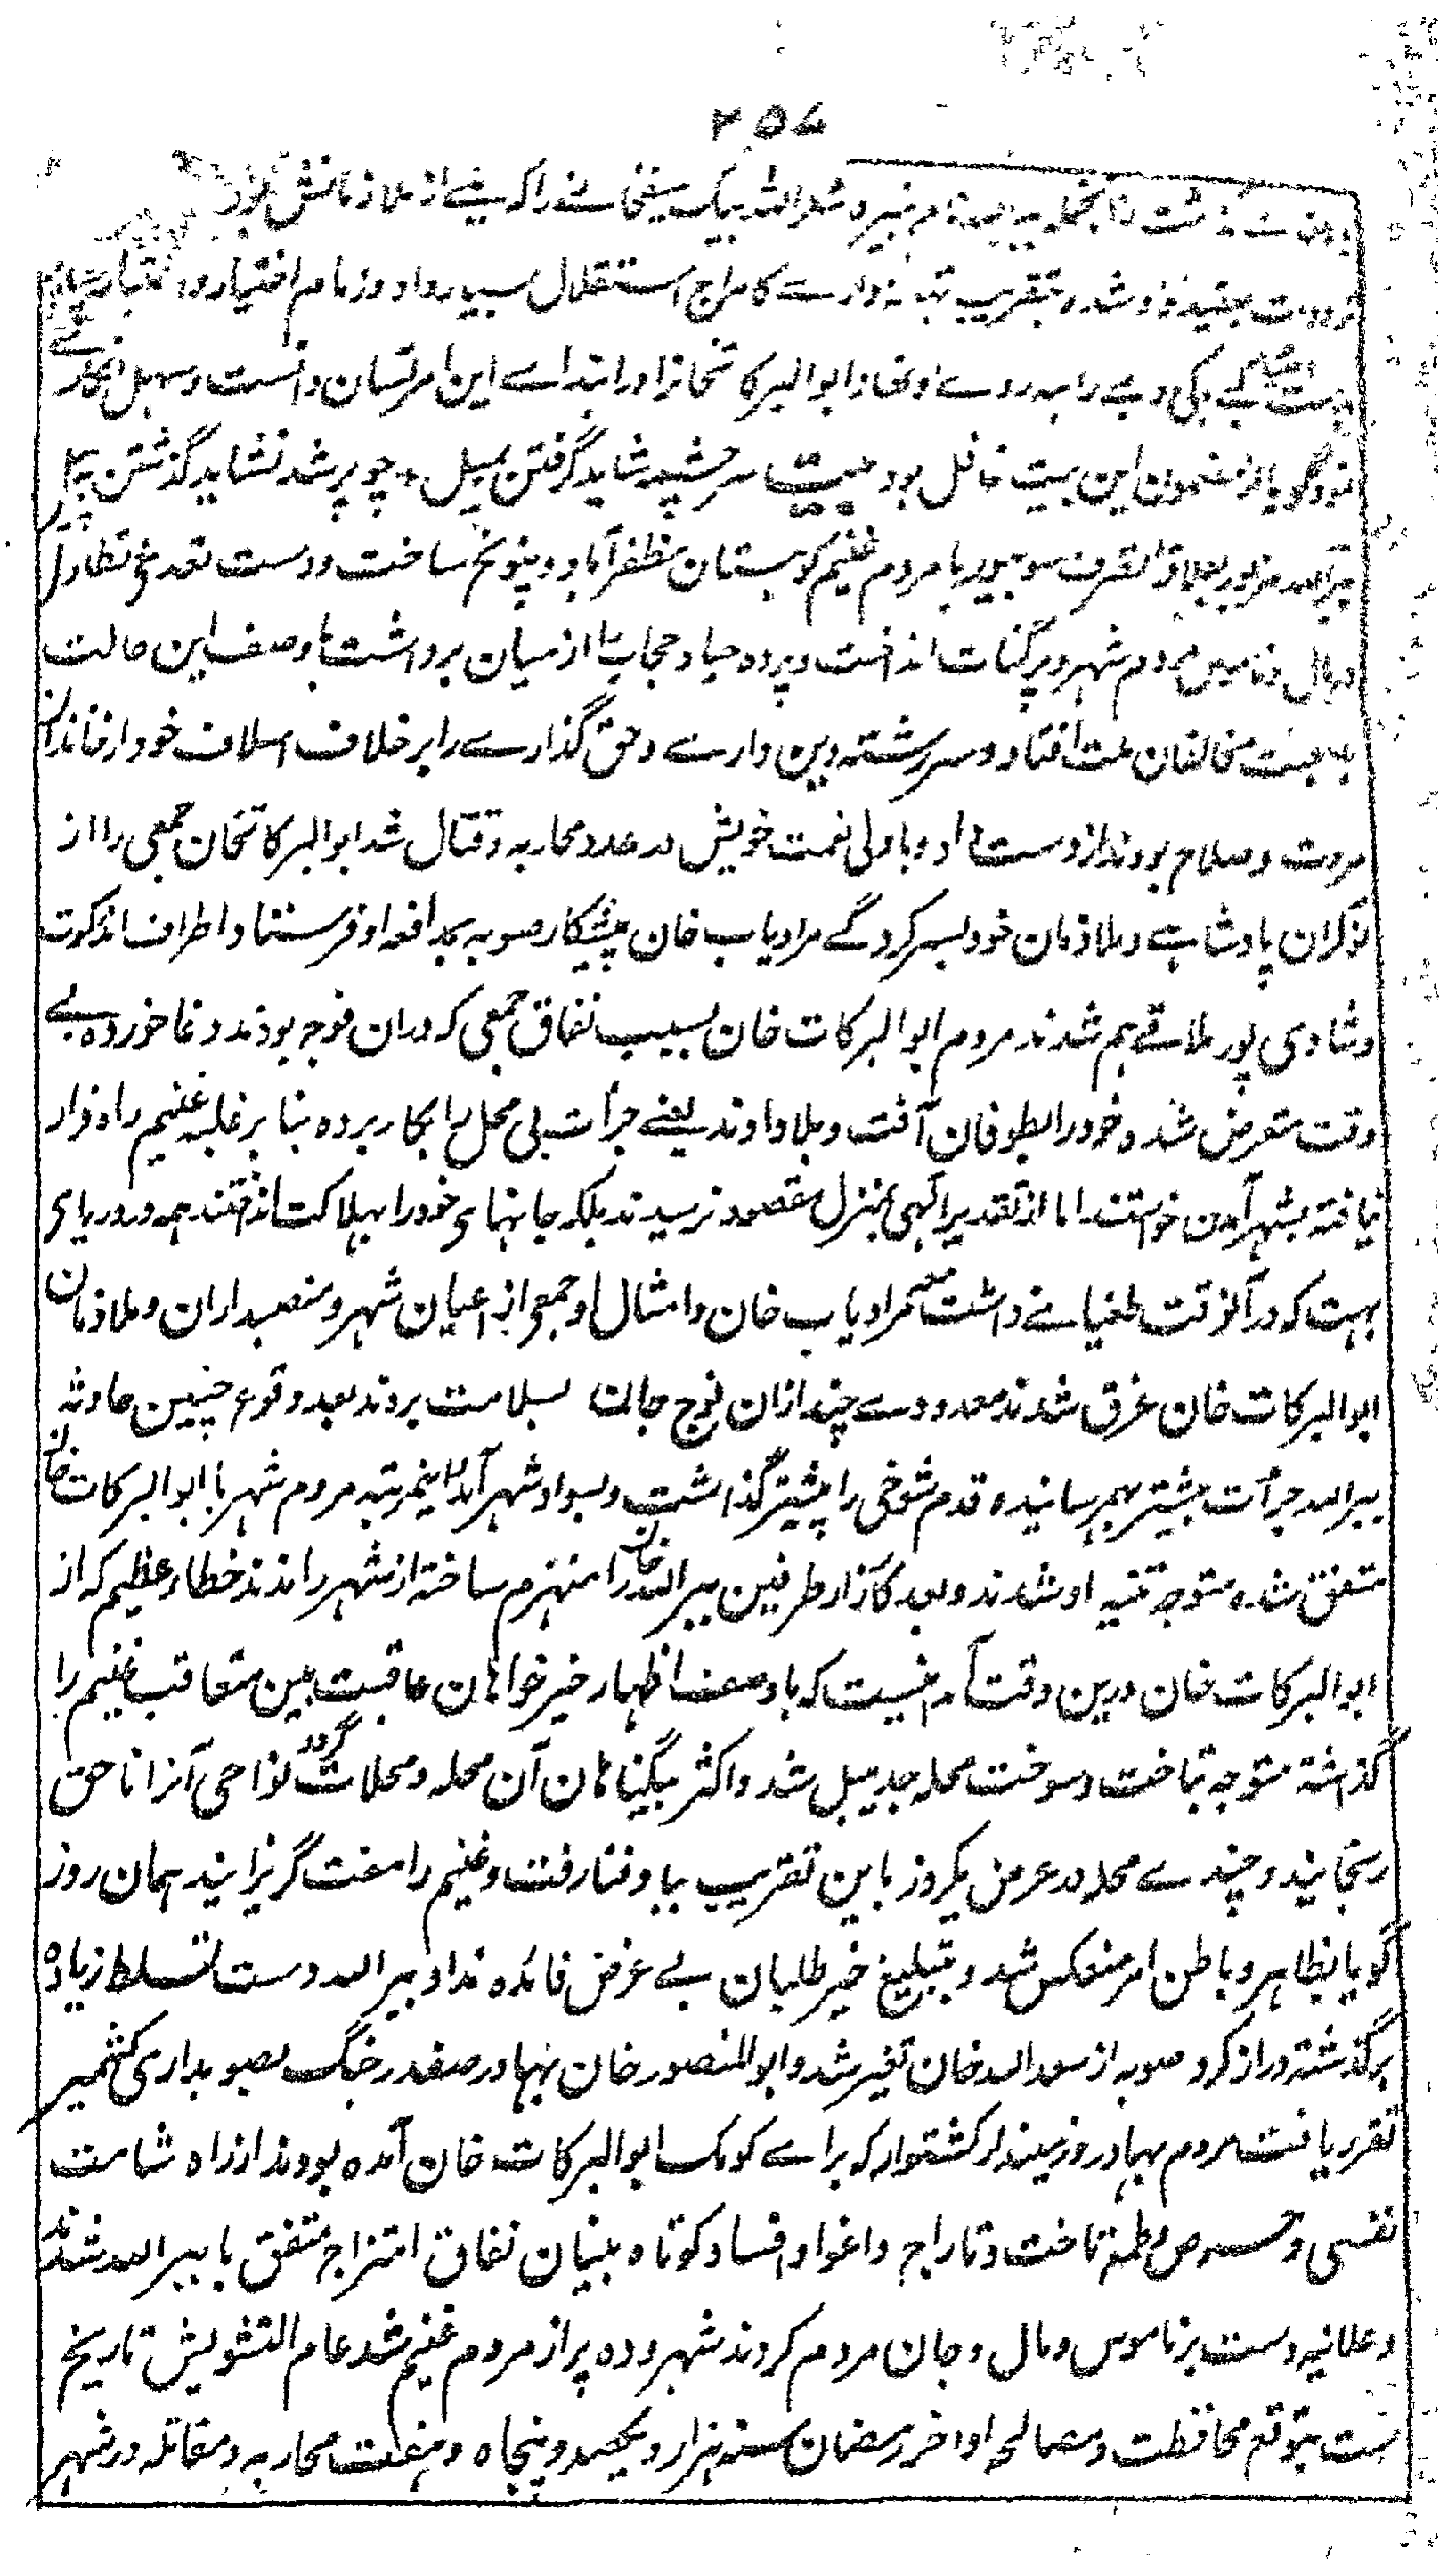 ۲۵۷
بیگ سیفخانے را که یکے از ملازمانش بود
استقلال بسیار داد و زمام اختیار و اعتبار
را بر روے او نهاد ابوالبرکاتخان او را در ابتداے این امر آسان دانست و سهل انگارے
نمود گویا از مضمون این بیت غافل بود بیت سر چشمه شاید گرفتن بمیل * چو پر شد نشاید گذشتن به پیل
با مردم غنیم کوهستان مظفرآباد و پونچ ساخت و دست تعدی و تطاول
مردم شهر و پرگنات انداخت و پرده حیا و حجاب را از میان برداشت با وصف این حالت
مخالفان ملت افتاد و سر رشته دین دارے و حق گذارے را بر خلاف اسلاف خود از خاندان
مروت و صلاح بودند از دست داد و با ولی نعمت خویش در صدد محاربه و قتال شد ابوالبرکاتخان جمعی را از
نوکران پادشاهے و ملازمان خود بسر کردگے مرادیاب خان پیشکار صوبه بمدافعه او فرستاد و اطراف اندرکوت
و شادی پور ملاقے هم شدند مردم ابوالبرکات خان بسبب نفاق جمعی که دران فوج بودند دغا خورده بے
وقت متعرض شده خود را بطوفان آفت و بلا دادند یعنے جرأت بی محل را بکار برده بنا بر غلبه غنیم راه فرار
نیافته بشهر آمدن خواستند اما از تقدیر الهی بمنزل مقصود نرسیدند بلکه جانهای خود را بهلاکت انداختند همه در دریای
بهت که در آنوقت طغیانے داشت مرادیاب خان و امثال او جمعی از اعیان شهر و منصبداران و ملازمان
ابوالبرکات خان غرق شدند معدودے چند ازان فوج جان بسلامت بردند بعد وقوع چنین حادثه
بیرالله جرأت بیشتر بهم رسانیده قدم شوخی را پیشتر گذاشت و بسواد شهر آمد اینمرتبه مردم شهر با ابوالبرکات خان
متفق شده متوجه تنبیه او شدند و بعد کارزار طرفین بیرالله خان را منهزم ساخته از شهر راندند خطاء عظیم که از
ابوالبرکات خان درین وقت آمد اینست که با وصف اظهار خیر خواهان عاقبت بین متعاقب غنیم را
گذاشته متوجه تاخت و سوخت محله جدیبل شد و اکثر بیگناهان آن محله و محلات گرد نواحی آنرا ناحق
رنجانید و چندے محله در عرض یکروز باین تقریب بباد فنا رفت و غنیم را مفت گریزانید همان روز
گویا بظاهر و باطن امر منعکس شد و تبلیغ خیر طلبان بے غرض فائده نداد بیرالله دست تسلط زیاده
بر گذشته دراز کرد صوبه از سعدالله خان تغیر شد و ابوالمنصور خان بهادر صفدر جنگ بصوبداری کشمیر
تقرر یافت مردم بهادر و زمیندار کشتوار که براے کومک ابوالبرکات خان آمده بودند از راه شامت
نفسی و حرص و طمع تاخت و تاراج و اغوا و افساد کوتاه بینان نفاق امتزاج متفق با بیرالله شدند
و علانیه دست بر ناموس و مال و جان مردم کردند شهر و ده پر از مردم غنیم شد عام التشویش تاریخ
است بتوقع محافظت و مصالحه اواخر رمضان سنه هزار و یکصد و پنجاه و هفت محاربه و مقاتله در شهر